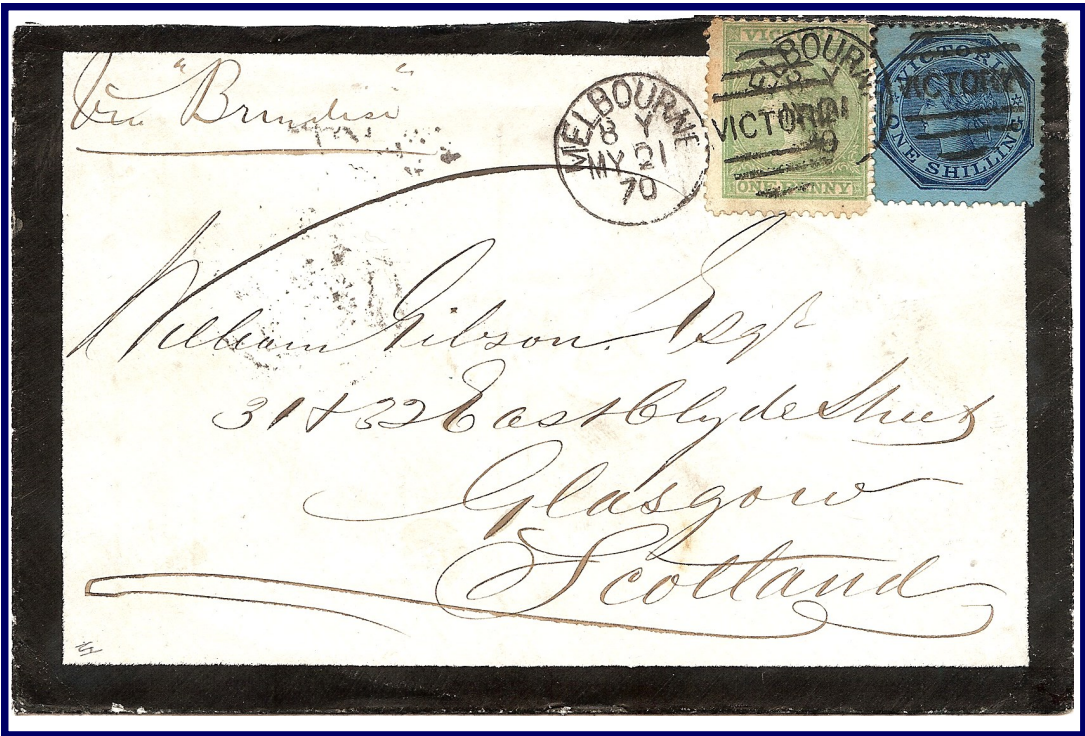 Via "Brindisi"
MELBOURNE
8 Y
MY 21
70
MELBOURNE
VICTORIA
ONE PENNY
VICTORIA
VICTORIA
ONE SHILLING
William Gibson Esqr
31 & 32 East Clyde Street
Glasgow
Scotland